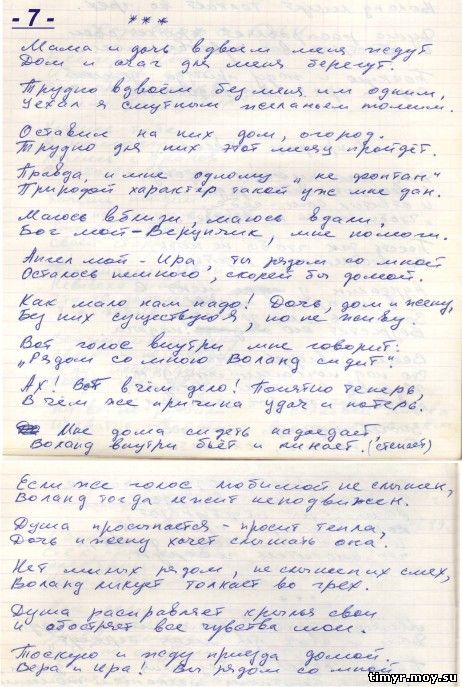 - 7 -
***
Мама и дочь вдвоем меня ждут
Дом и очаг для меня берегут.
Трудно вдвоём без меня им одним,
Уехал я смутным желаньем томим.
Оставил на них дом, огород.
Трудно для них этот месяц пройдёт.
Правда, и мне одному „не фонтан"
Природой характер такой уже мне дан.
Маюсь вблизи, маюсь вдали,
Бог мой - Верунчик, мне помоги.
Ангел мой - Ира, ты рядом со мной
Осталось немного, скорей бы домой.
Как мало нам надо! Дочь, дом и жену,
Без них существую я, но не живу.
Вот голос внутри мне говорит:
„Рядом со мною Воланд сидит".
Ах! Вот в чём дело! Понятно теперь,
В чём же причина удач и потерь.
Мне дома сидеть надоедает,
Воланд внутри бьёт и пинает. (стенает)
Если же голос любимой не слышен,
Воланд тогда лежит неподвижен.
Душа просыпается - просит тепла,
Дочь и жену хочет слышать она.
Нет милых рядом, не слышен их смех,
Воланд ликует толкает во грех.
Душа расправляет крылья свои
и обостряет все чувства мои.
Тоскую и жду приезда домой.
Вера и Ира! Вы рядом со мной
timyr.moy.su